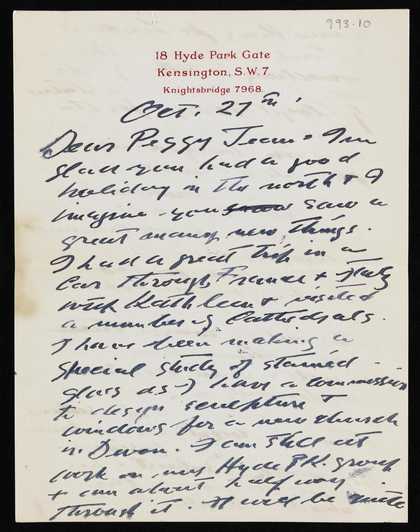 993.10
18 Hyde Park Gate
Kensington, S.W.7.
Knightsbridge 7968.
Oct. 27th
Dear Peggy Jean - I'm
glad you had a good
holiday in the north & I
imagine you saw a
great many new things.
I had a great trip in a
Car through France & Italy
with Kathleen & visited
a number of Cathedrals.
I have been making a
special study of stained
glass as I have a commission
to design sculpture &
windows for a new church
in Devon. I am still at
work on my Hyde PK. group
& am about half way
through it. It will be quite